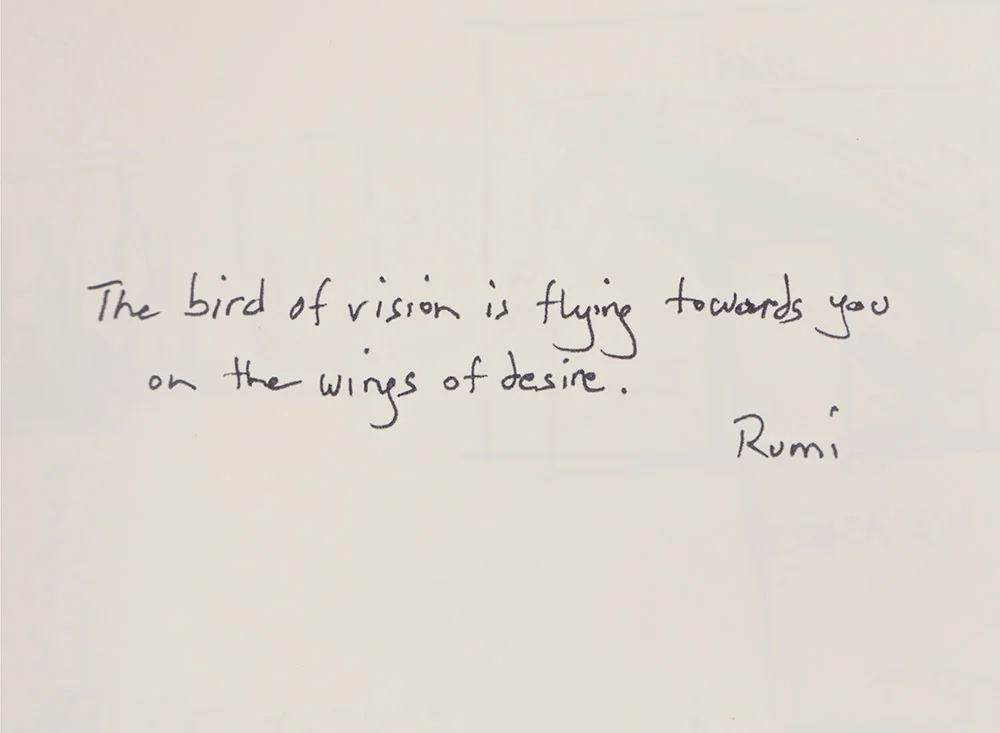 The bird of vision is flying towards you
on the wings of desire.
Rumi